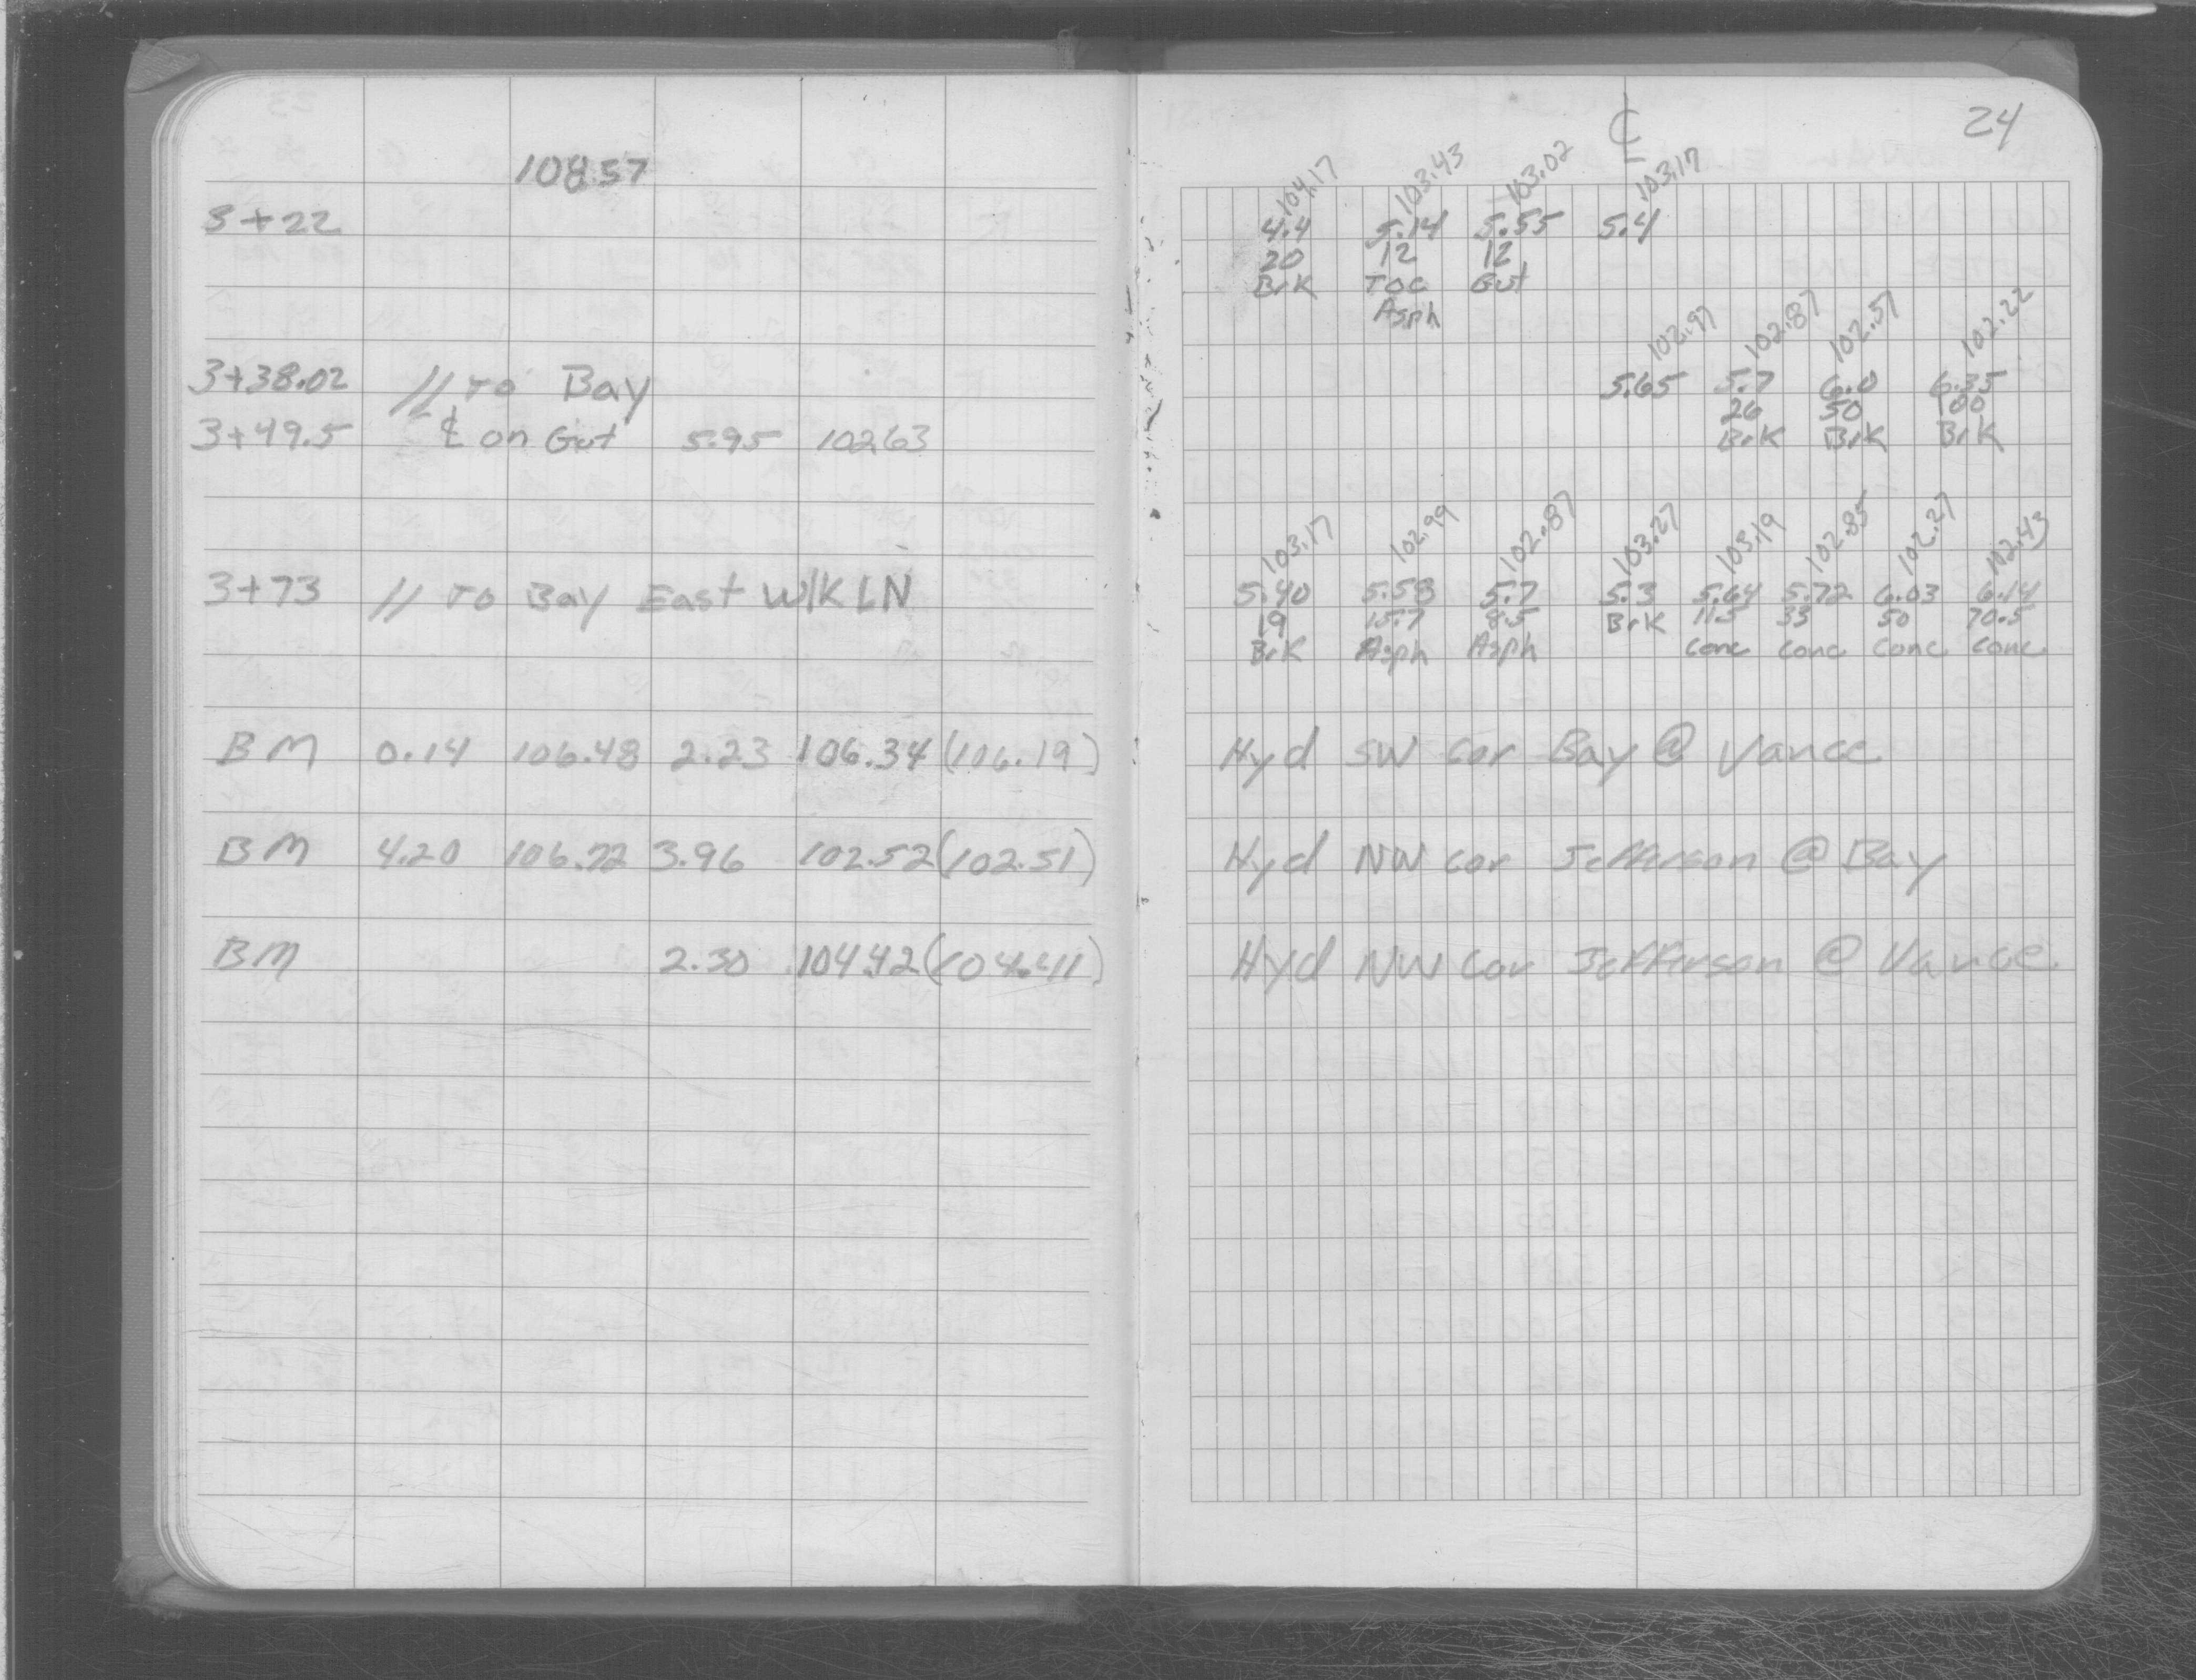 108.57
3+22
3+38.02 // To Bay
3+49.5 ℄ on Gut 5.95 102.63
3+73 // To Bay East W/K LN
BM 0.14 106.48 2.23 106.34 (106.19)
BM 4.20 106.72 3.96 102.52 (102.51)
BM 2.30 104.42 (104.41)
℄ 24
104.17 103.43 103.02 103.17
4.4 5.14 5.55 5.4
20 12 12
BrK TOC Gut
Asph
102.97 102.87 102.57 102.22
5.65 5.7 6.0 6.35
26 50 100
BrK BrK BrK
103.17 102.99 102.87 103.27 103.19 102.85 102.27 102.43
5.40 5.58 5.7 5.3 5.64 5.72 6.03 6.14
19 15.7 8.5 BrK 11.5 33 50 70.5
BrK Asph Asph Conc Conc Conc Conc
Hyd SW Cor Bay @ Vance
Hyd NW Cor Jefferson @ Bay
Hyd NW Cor Jefferson @ Vance